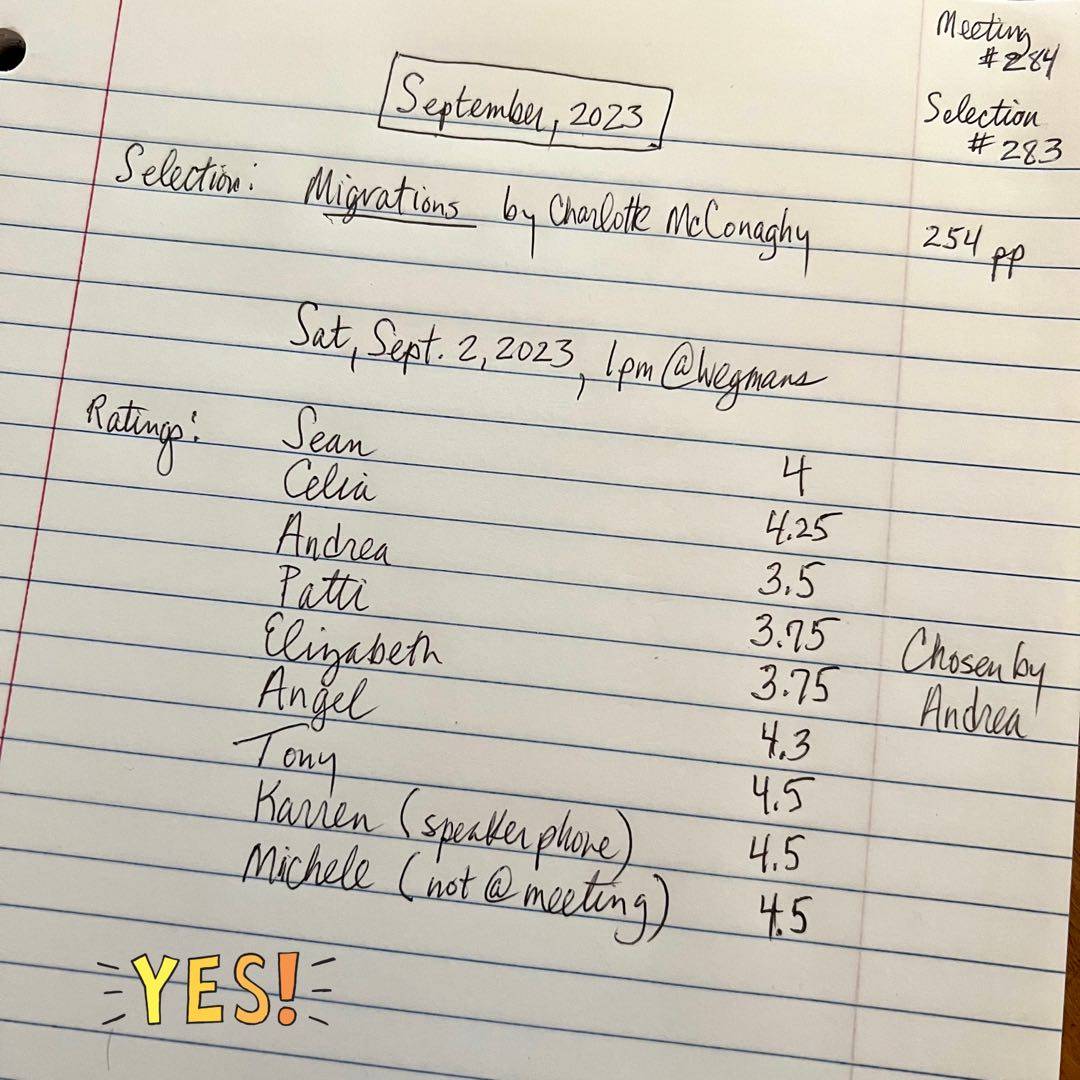 Meeting
#284
September, 2023
Selection
#283
Selection: Migrations by Charlotte McConaghy 254 pp
Sat, Sept. 2, 2023, 1pm @ Wegmans
Ratings: Sean 4
Celia 4.25
Andrea 3.5
Patti 3.75
Elizabeth 3.75
Chosen by
Andrea
Angel 4.3
Tony 4.5
Karren (speaker phone) 4.5
Michele (not @ meeting) 4.5
YES!